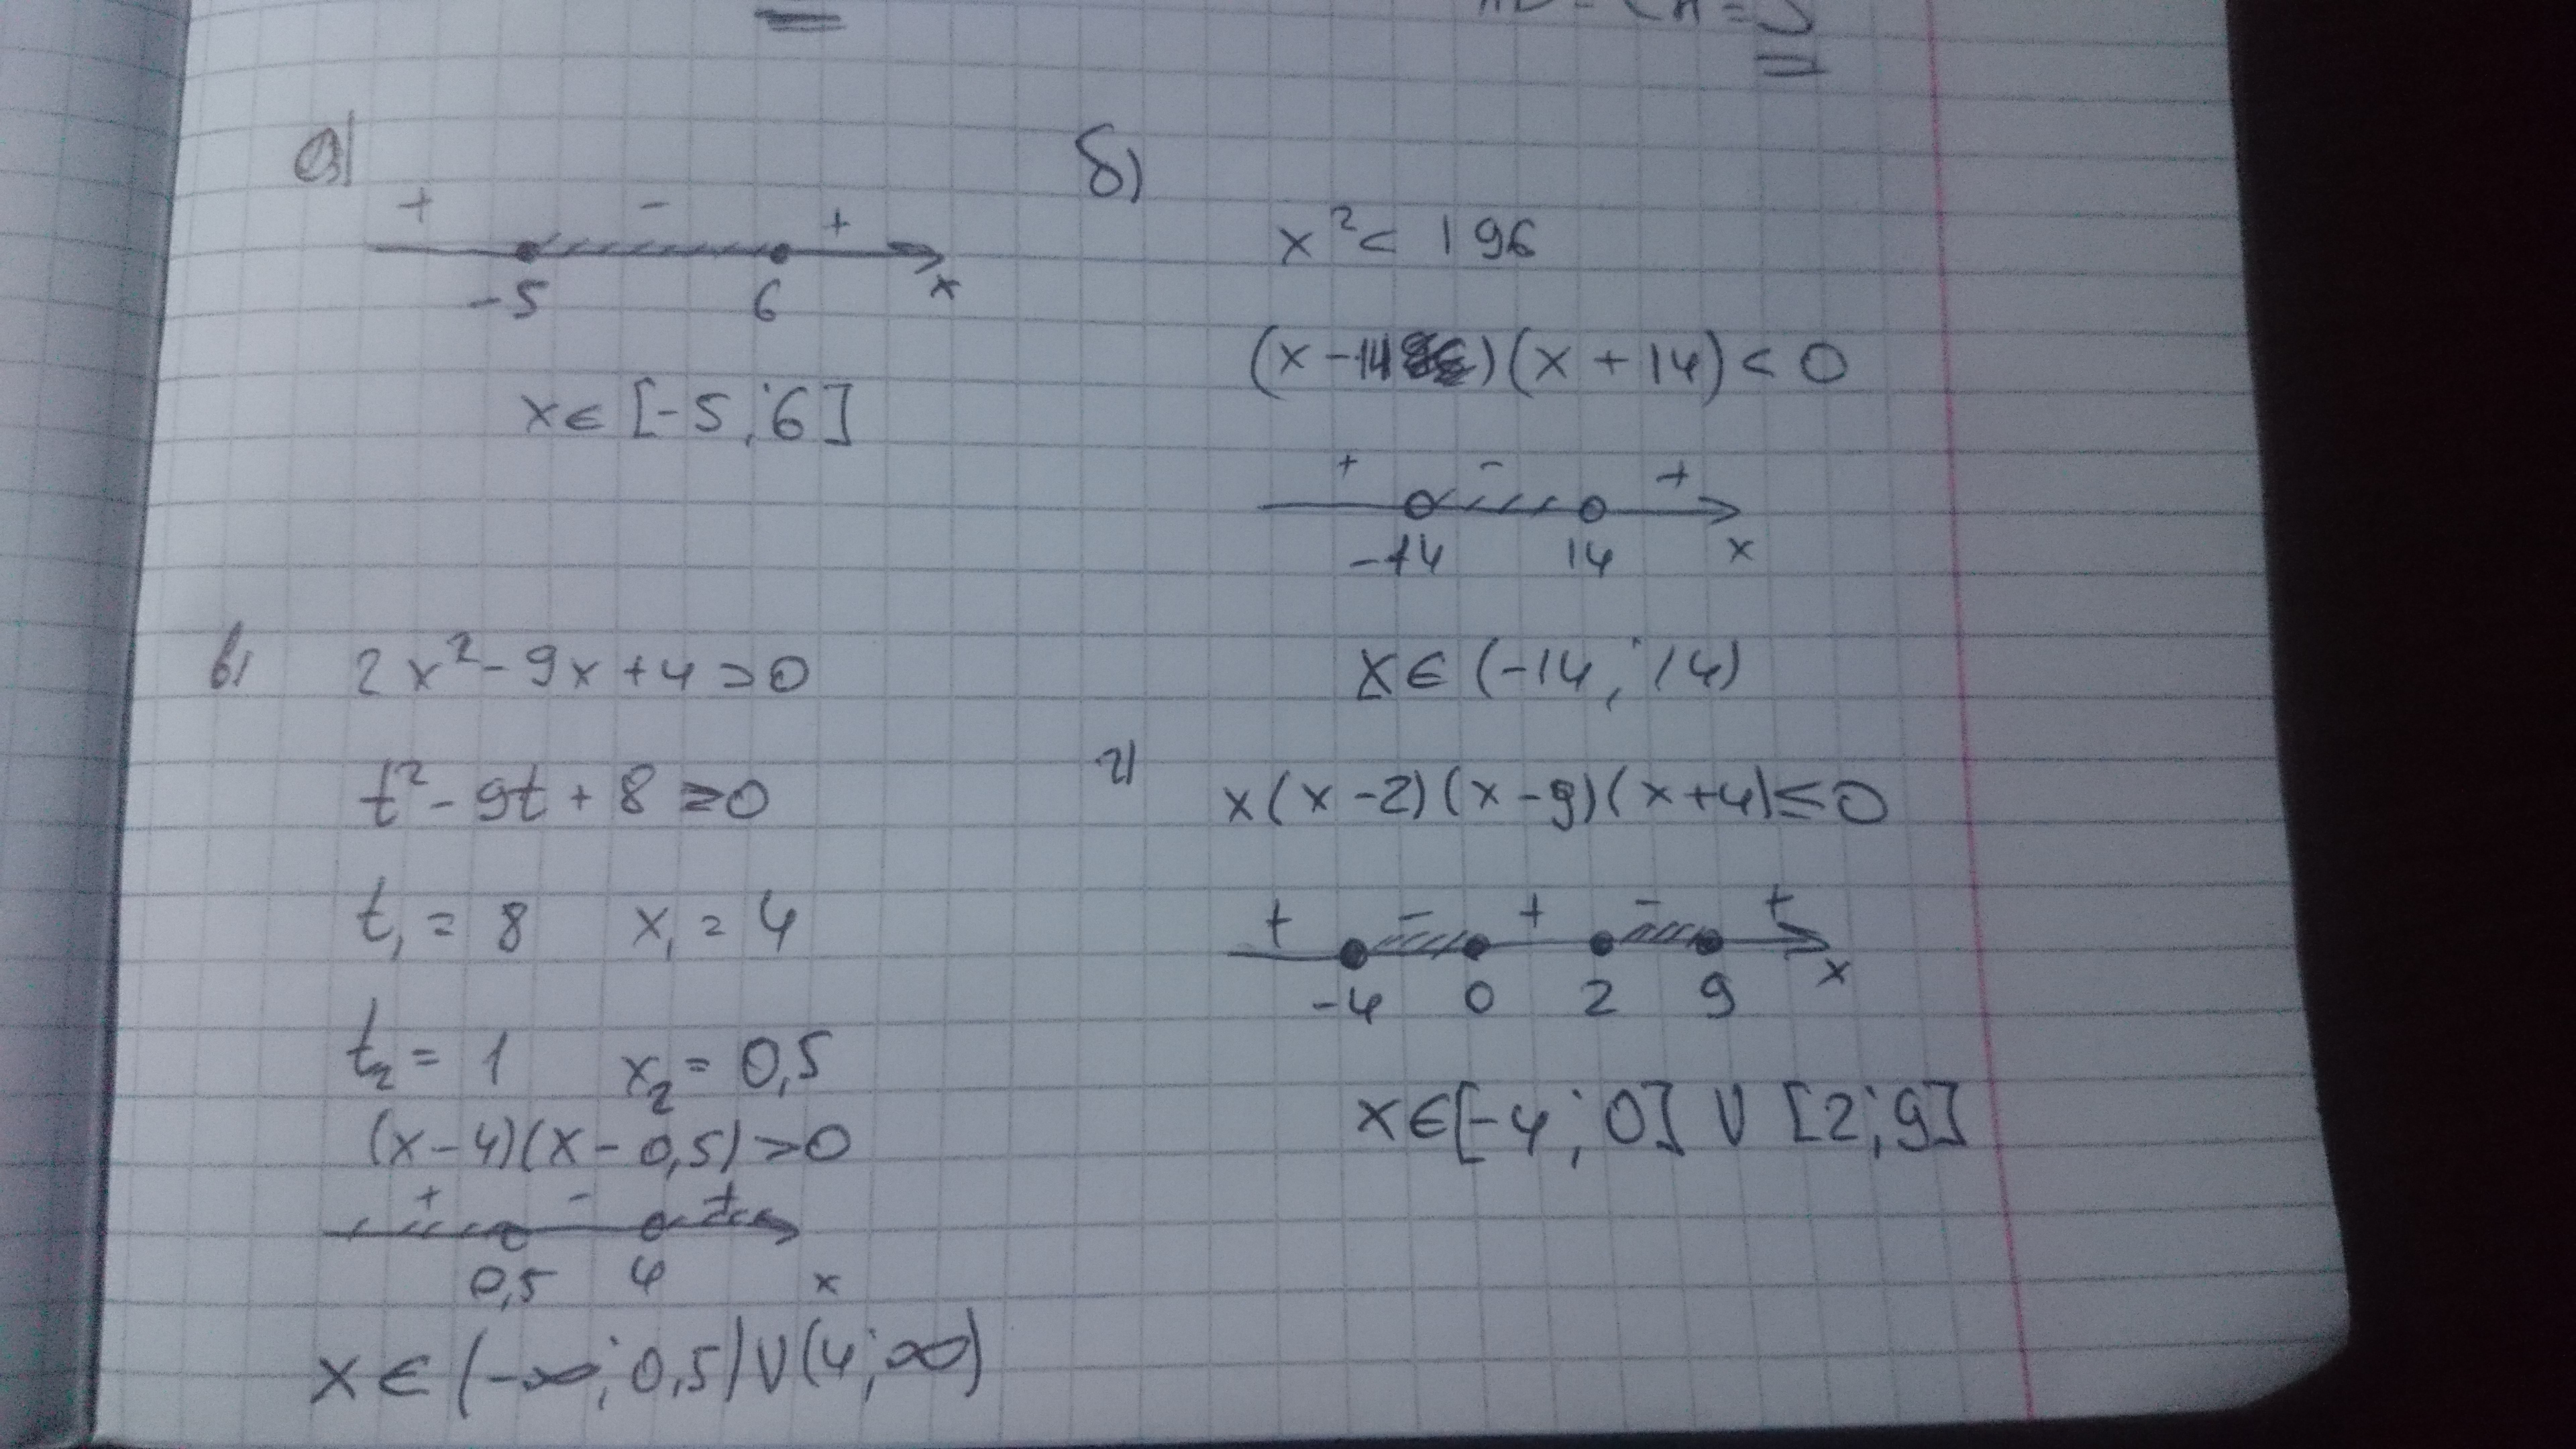 а)
+ - +
-5 6 x
x ∈ [-5; 6]
б)
x² < 196
(x - 14)(x + 14) < 0
+ - +
-14 14 x
x ∈ (-14; 14)
в)
2x² - 9x + 4 > 0
t² - 9t + 8 > 0
t₁ = 8 x₁ = 4
t₂ = 1 x₂ = 0,5
(x - 4)(x - 0,5) > 0
+ - +
0,5 4 x
x ∈ (-∞; 0,5) ∪ (4; ∞)
г)
x(x - 2)(x - 9)(x + 4) ≤ 0
+ - + - +
-4 0 2 9 x
x ∈ [-4; 0] ∪ [2; 9]